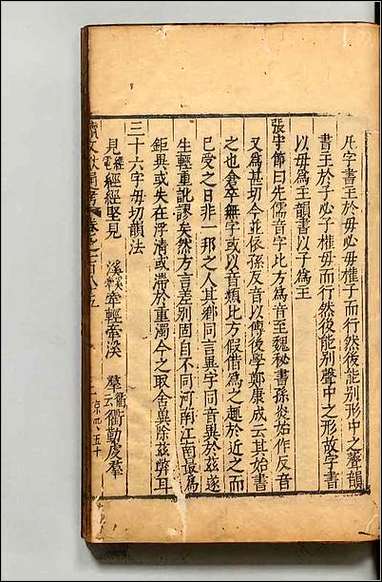 凡字書主於母必母權子而行然後能别形中之聲韻
書主於子必子權母而行然後能别聲中之形故字書
以母爲主韻書以子爲主
張守節曰先儒音字比方爲音至魏秘書孫炎始作反音
又爲甚切今並依孫反音以傳後學鄭康成云其始書
之也倉卒無字或以音類比方假借爲之趣於近之而
已受之曰非一邦之人其鄉同言異字同音異於兹遂
生輕重訛謬矣然方言差别固自不同河南江南最爲
鉅異或失在浮清或滯於重濁今之取舍冀除兹弊耳
三十六字母切韻法
見經電經經堅見 溪 牽輕牽溪 羣 云衢勤䖍羣
續文獻通考 卷之一百八十五